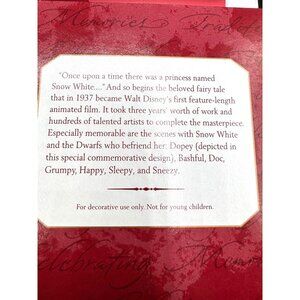 Memories
"Once upon a time there was a princess named
Snow White...." And so begins the beloved fairy tale
that in 1937 became Walt Disney's first feature-length
animated film. It took three years' worth of work and
hundreds of talented artists to complete the masterpiece.
Especially memorable are the scenes with Snow White
and the Dwarfs who befriend her: Dopey (depicted in
this special commemorative design), Bashful, Doc,
Grumpy, Happy, Sleepy, and Sneezy.
For decorative use only. Not for young children.